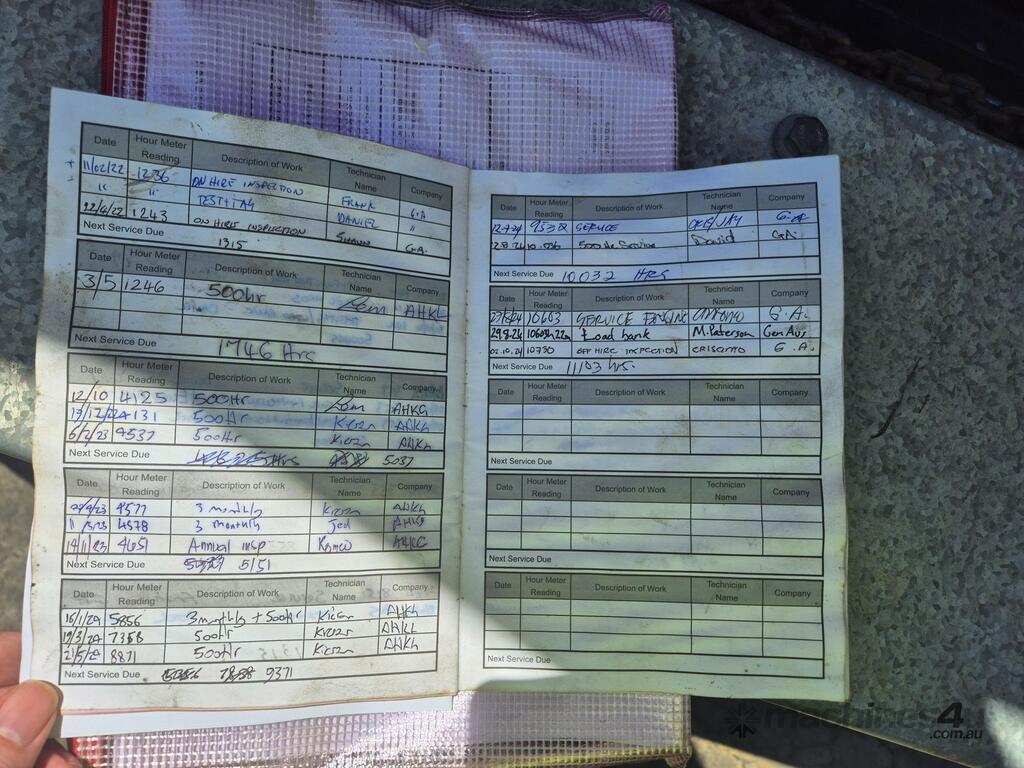 Date Hour Meter Reading Description of Work Technician Name Company
11/02/22 1236 ON HIRE INSPECTION FRANK G.A
" " TEST+TAG DANIEL "
22/4/22 1243 ON HIRE INSPECTION SHAWN G.A.
Next Service Due 1315
Date Hour Meter Reading Description of Work Technician Name Company
3/5 1246 500hr AHKL
Next Service Due 1746 Hrs
Date Hour Meter Reading Description of Work Technician Name Company
12/10 4125 500Hr AHKG
500Hr Kieran AHKG
6/2/23 4537 500Hr Kieran AHKG
Next Service Due 5037
Date Hour Meter Reading Description of Work Technician Name Company
4577 3 monthly Kieran AHKG
4578 3 monthly Jed AHKG
14/11/23 4651 Annual insp Romeo AHKG
Next Service Due 5151
Date Hour Meter Reading Description of Work Technician Name Company
16/1/24 5856 3 monthly + 500hr Kieran AHKG
19/3/24 7358 500hr Kieran AHKL
21/5/24 8871 500hr Kieran AHKG
Next Service Due 9371
Date Hour Meter Reading Description of Work Technician Name Company
12.7.24 9532 SERVICE G.A
12.8.24 10.036 500 Hr Service David G.A.
Next Service Due 10032 HRS
Date Hour Meter Reading Description of Work Technician Name Company
27/8/24 10603 SERVICE ENGINE ANTONIO G.A.
29.8.24 Load bank M.Paterson Gen Aus
02.10.24 10730 OFF HIRE INSPECTION CRISANTO G.A.
Next Service Due 11103 hrs.
Date Hour Meter Reading Description of Work Technician Name Company
Next Service Due
Date Hour Meter Reading Description of Work Technician Name Company
Next Service Due
Date Hour Meter Reading Description of Work Technician Name Company
Next Service Due
machines4u
.com.au